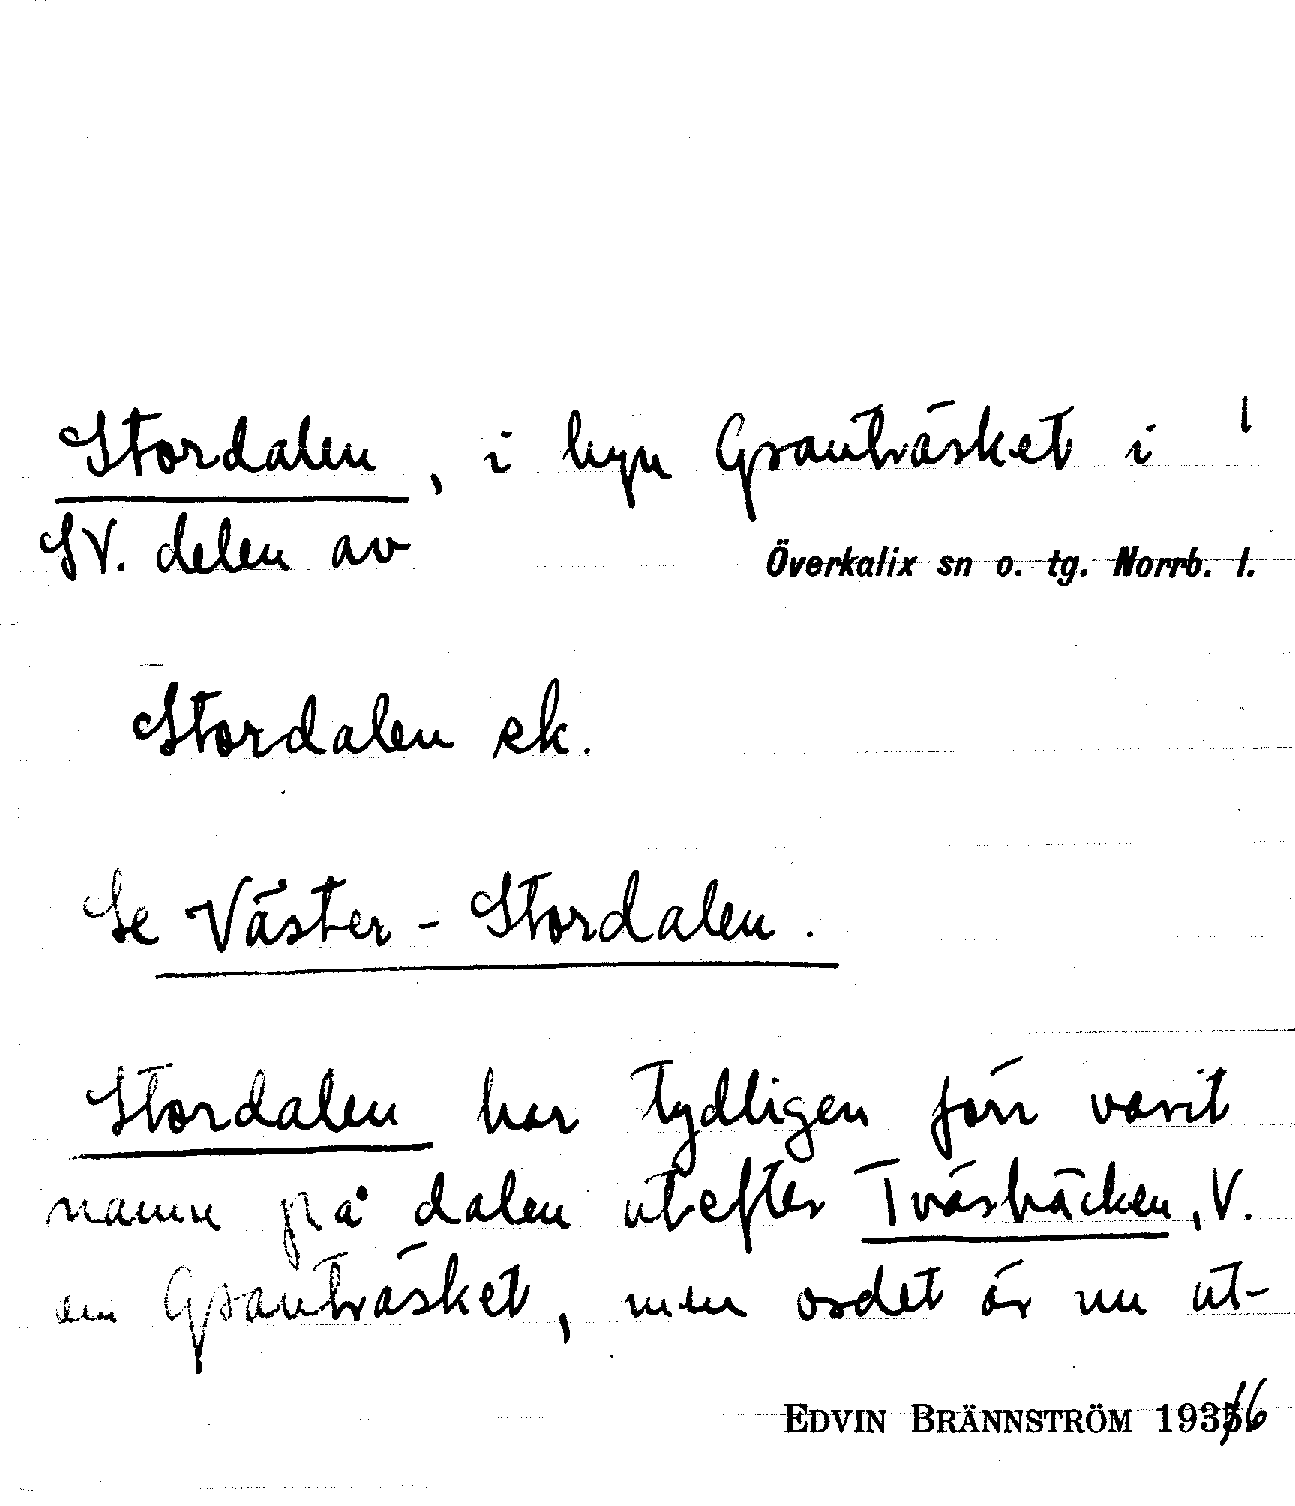 Stordalen, i byn Granträsket i 1
SV. delen av Överkalix sn o. tg. Norrb. l.
Stordalen ek.
Se Väster-Stordalen.
Stordalen har tydligen förr varit
namn på dalen utefter Tväråbäcken, V.
om Granträsket, men ordet är nu ut-
EDVIN BRÄNNSTRÖM 1936